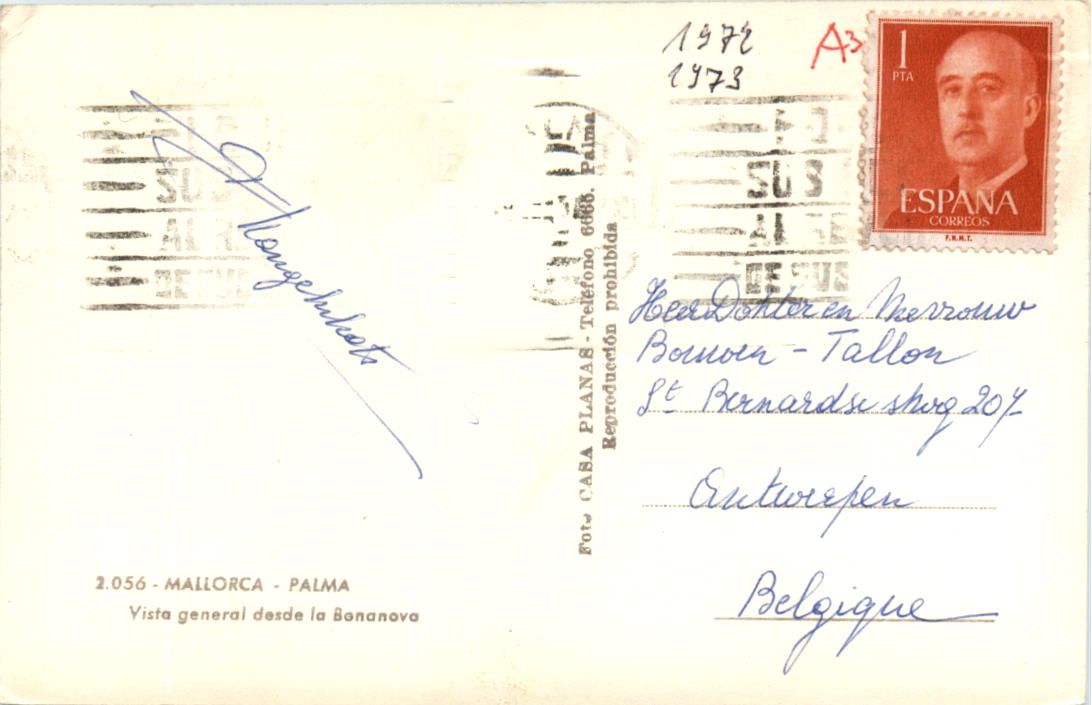 1972
1973
A3
1
PTA
ESPAÑA
CORREOS
F.N.M.T.
SUS
AL
DE SUS
Foto CASA PLANAS - Teléfono 6666. Palma
Reproducción prohibida
Heer Dokter en Mevrouw
- Tallon
St Bernardse 207
Antwerpen
Belgique
2.056 - MALLORCA - PALMA
Vista general desde la Bonanova